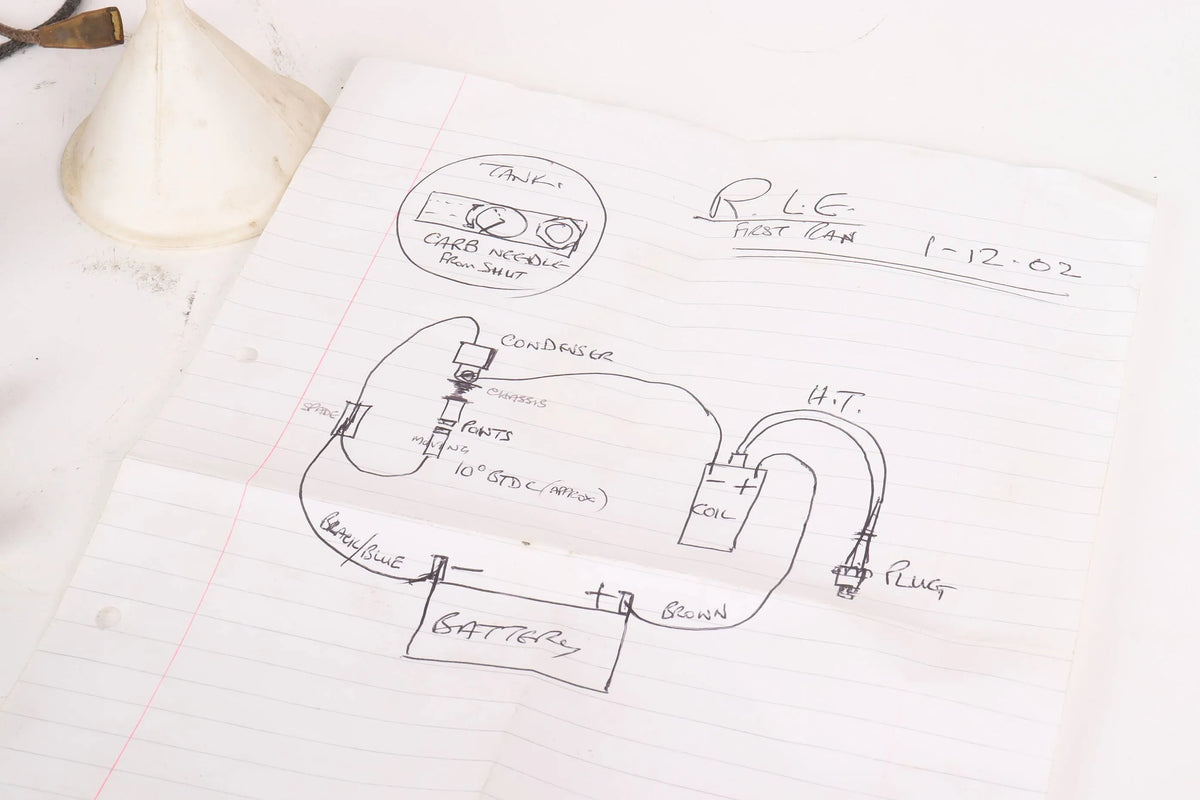 TANK.
CARB NEEDLE
FROM SHUT
R.L.E.
FIRST RAN 1-12-02
CONDENSER
CHASSIS
SPADE
POINTS
MOVING
10° BTDC (APPROX)
H.T.
- +
COIL
PLUG
BLACK/BLUE
- +
BATTERY
BROWN